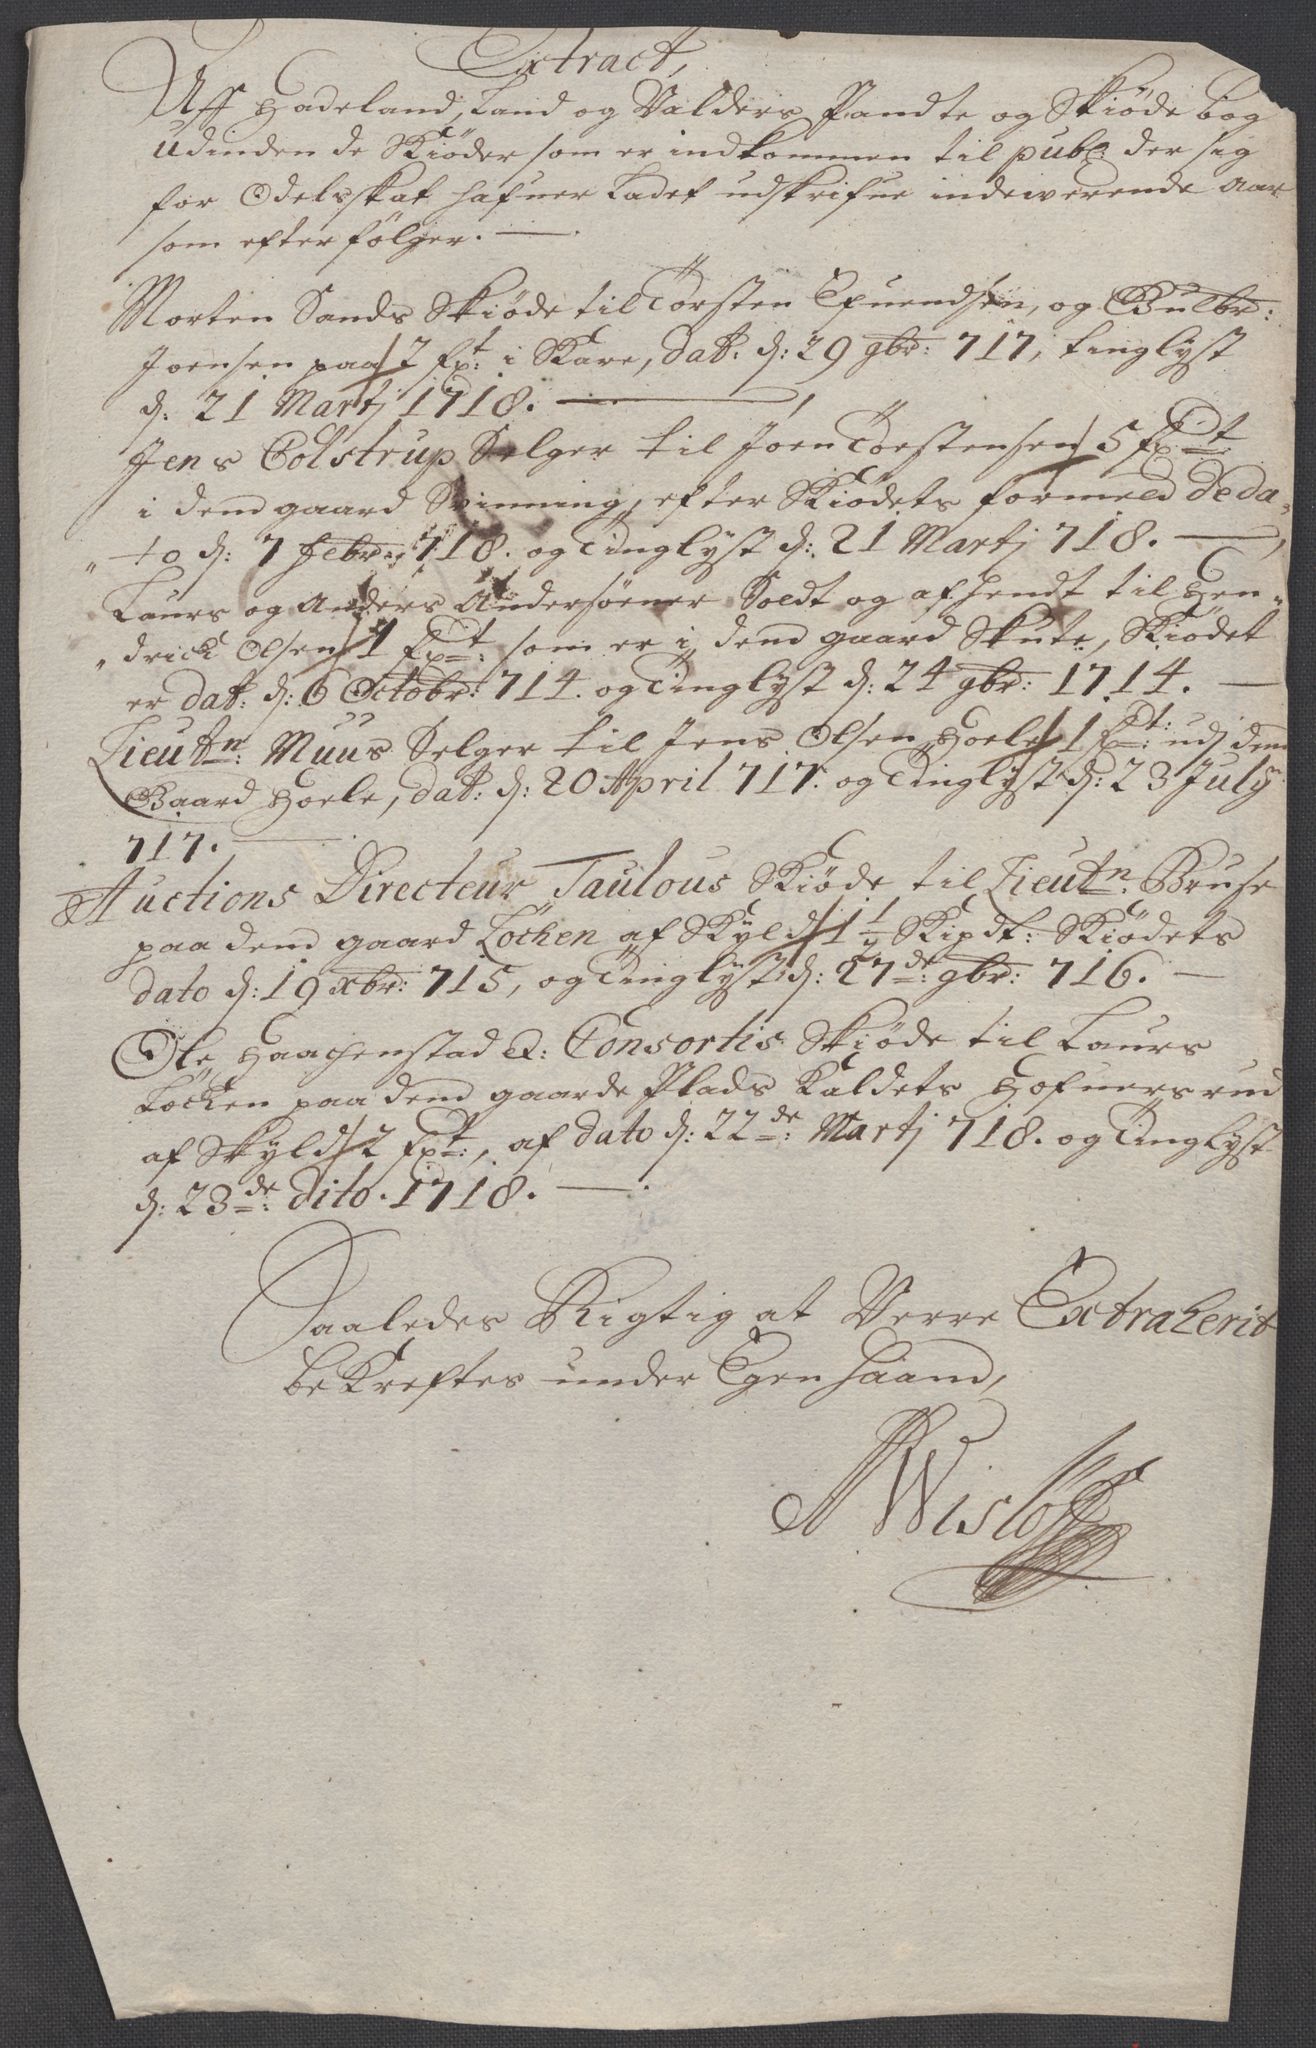 Extract,
Aff Hadeland, Land og Valders Pandte og Skiöde bog
udinden de Skiöder som er indkommen til publ: der sig
for Odelsskat hafuer ladet udskrifue indewerende Aar
som efterfölger. —
Morten Sands Skiöde til Törsten Efuendsen, og Gulbr:
Joensen paa 2 fp:t i Skare, dat: d: 29 9br: 717, tinglyst
d: 21 Martj 1718. —
Jens Colstrup Selger til Joen Törstensen 5 fp:t
i dend gaard Vinning, efter Skiödets formeld De da„
„to d: 7 Febr: 718. og Tinglyst d: 21 Martj 718. —
Laurs og Anders Andersöener Soldt og afhendt til Hen„
„drich Olsen 1 fp:t som er i dend gaard Skute, Skiödet
er dat: d: 6 Octobr: 714. og Tinglyst d: 24 9br: 1714. —
Lieutn: Muus Selger til Jens Olsen Hoele 1 fp:t udj dend
Gaard Hoele, dat: d: 20 April 717. og Tinglyst d: 23 July
717. —
Auctions Directeur Taulous Skiöde til Lieutn: Bruse
paa dend gaard Löchen af Skyld 1 1/2 Skipdt: Skiödets
dato d: 19 xbr: 715, og Tinglyst d: 27de: 9br: 716. —
Ole Haachenstad &: Consortis Skiöde til Laurs
Löchen paa dend gaarde Plads Kaldets Hofuersrud
af Skyld 2 fp:t, af dato d: 22de: Martj 718. og Tinglyst
d: 23de: dito. 1718. —
Saaledes Rigtig at Verre Extraherit
bekreftes under Egen haand,
A Wislöff